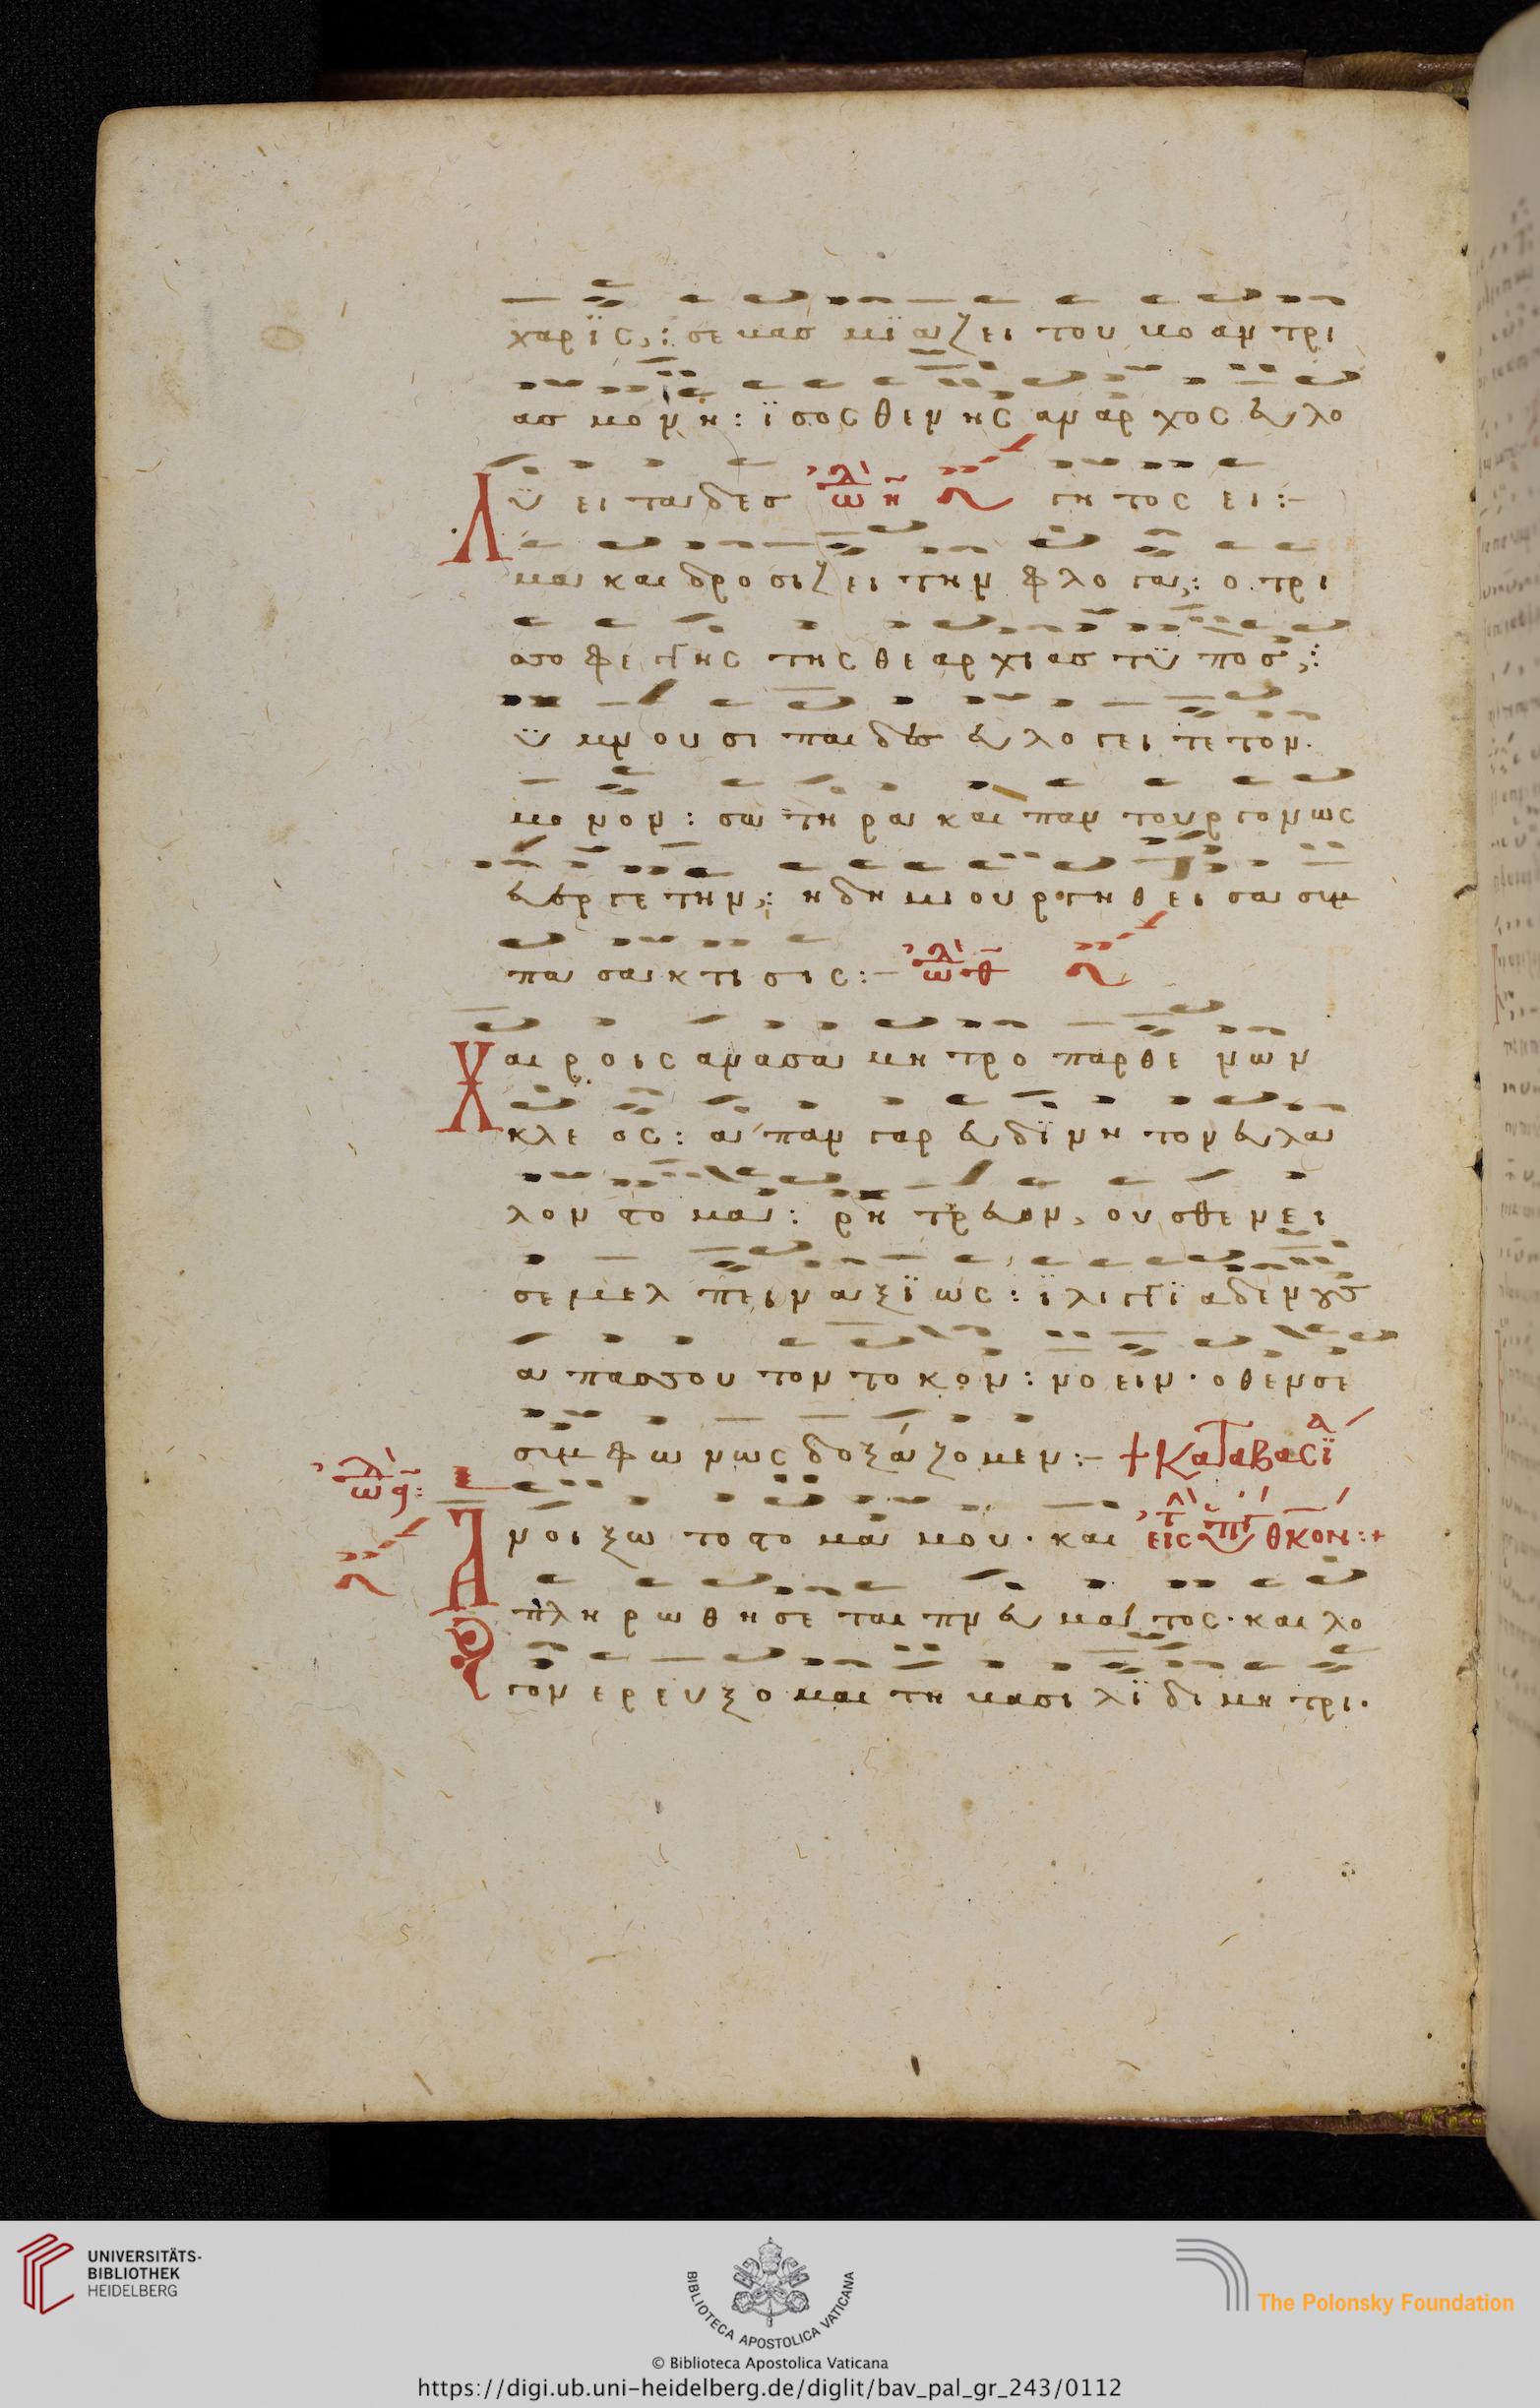 χαρϊς,: σε βας βϊαζει του βο αν τρι
ας μο νη: ϊσος θενης αναρ χος ευλο
ϋ ει ταιδες ωδη η γη τος ει:-
Λ
μα και δρο σιζει την φλο γα,: ο τρι
σο φε γγης της θε αρ χι ας τϋ πος,:
ϋ μν ου σι παι δες ευ λο γει τε τον.
μο νον: σω τη ρα και παν τουρ γον ως
ευερ γε την,: η δη μι ουρ γη θει σα συμ
πα σα κ τι σις:- ωδη θ
Χαι ρ οις ανασσα μη τρο παρθε νων
κλε ος: α παν γαρ ευ δϊ νη τον ευ λα
λον στο μα: ρη τρ ευον, ου σθε νει
σε μελ πειν αξϊ ως: ϊ λιγγϊ α δε νους
α πας σου τον το κον: νο ειν. οθενσε
συμ φω νως δοξάζομεν:- + Καταβασϊ
ωδη α:
Α νοι ξω το στο μα μου. και εις θκον:+
πλη ρω θη σε ται πν ευ μα τος. και λο
γον ε ρ ευ ξο μαι τη βασι λϊ δι μη τρι.
UNIVERSITÄTS-
BIBLIOTHEK
HEIDELBERG
BIBLIOTECA APOSTOLICA VATICANA
The Polonsky Foundation
© Biblioteca Apostolica Vaticana
https://digi.ub.uni-heidelberg.de/diglit/bav_pal_gr_243/0112